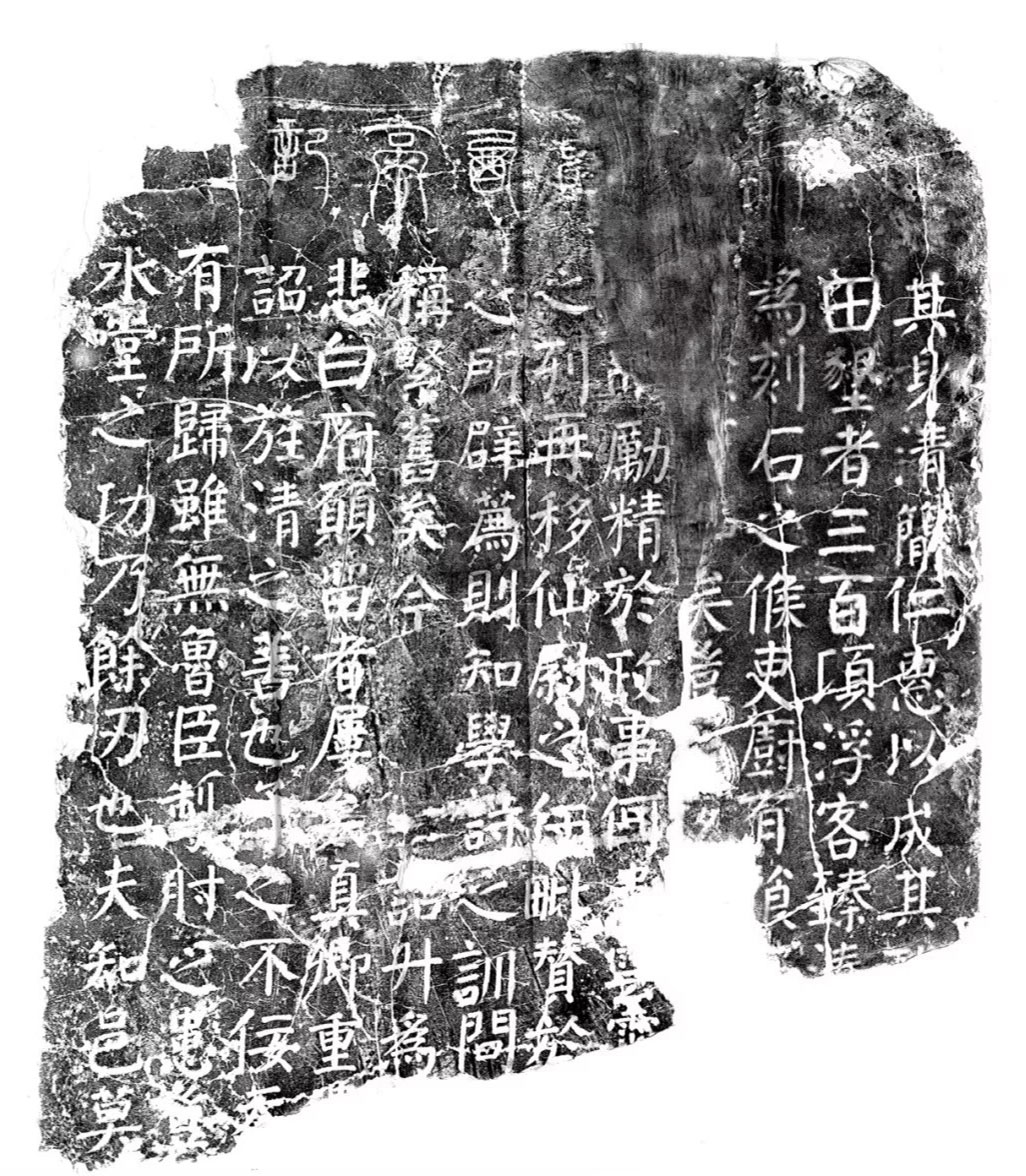 西亭記
其身清簡仁惠以成其
田墾者三百頃浮客臻湊
為刻石之候吏廚有飡
矣豈
勵精於政事何
之列再移仙尉之任毗贊於
之所辟薦則知學詩之訓間
稱緊舊矣今 詔升為
悲白府願留者屢 真卿重
詔以旌清之善也 之不佞
有所歸雖無魯臣掣肘之患豈
水堂之功乃餘刃也夫知邑莫